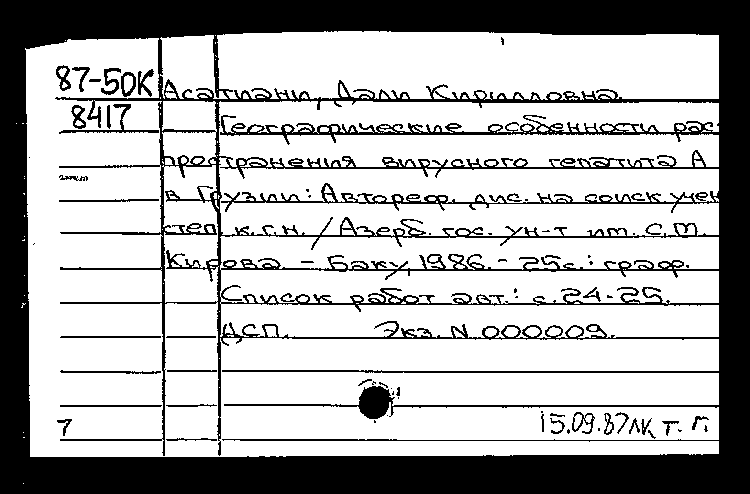 87-50К Асатиани, Дали Кирилловна.
8417 Географические особенности рас-
пространения вирусного гепатита А
в Грузии: Автореф. дис. на соиск. учен
степ к.г.н. / Азерб. гос. ун-т им. С.М.
Кирова. - Баку, 1986. - 25с.: граф.
Список работ авт.: с.24-25.
ДСП. Экз. N 000009.
7 15.09.87 т. г.